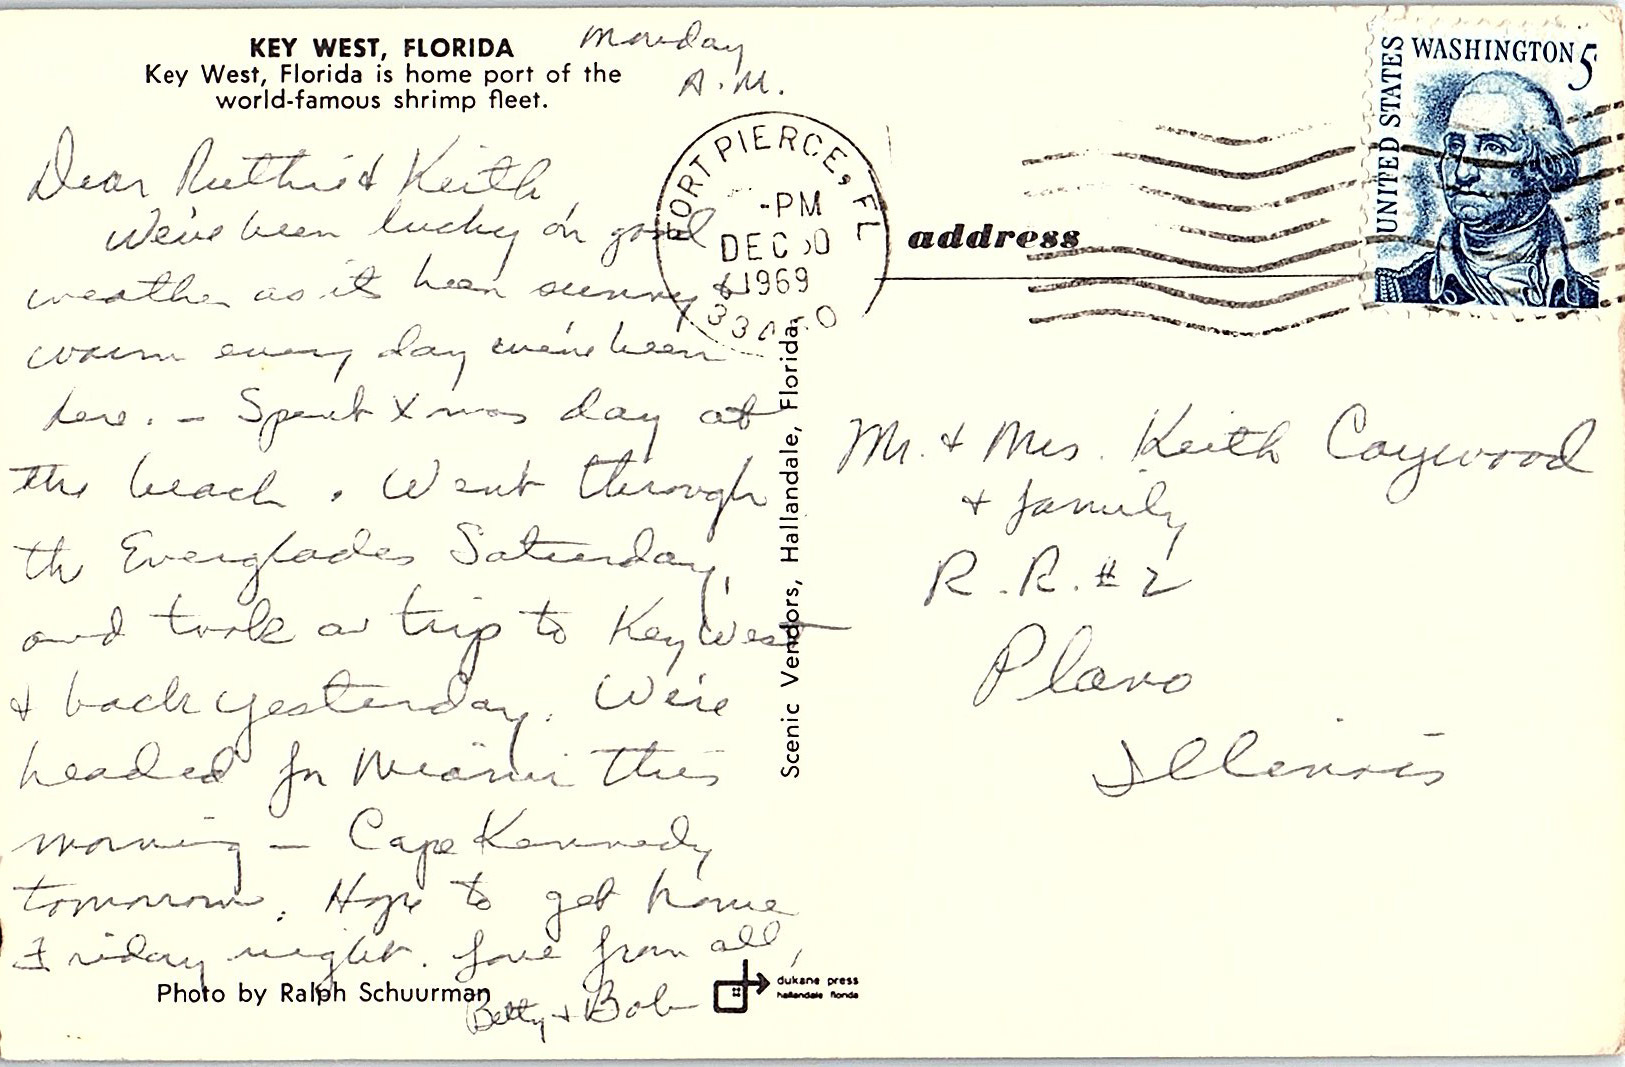 KEY WEST, FLORIDA
Key West, Florida is home port of the
world-famous shrimp fleet.
Monday
A.M.
Dear Ruthie & Keith,
We've been lucky on good
weather as it been sunny &
warm every day we've been
here. - Spent Xmas day at
the beach. Went through
the Everglades Saturday,
and took a trip to Key West
& back yesterday. We're
headed for Miami this
morning - Cape Kennedy
tomorrow. Hope to get home
Friday night. Love from all,
Betty & Bob
Photo by Ralph Schuurman
dukane press
hallandale florida
Scenic Vendors, Hallandale, Florida.
FORT PIERCE, FL
-PM
DEC 0
1969
address
UNITED STATES
WASHINGTON 5
Mr. & Mrs. Keith Caywood
& family
R.R. #2
Plano
Illinois